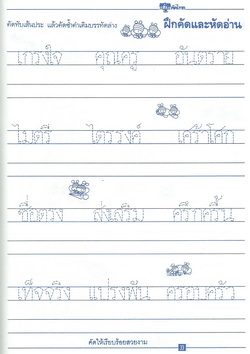 คัดทับเส้นประ แล้วคัดซ้ำคำเดิมบรรทัดล่าง ฝึกคัดและหัดอ่าน
เกรงใจ คุณครู อันตราย
ไมตรี ไตรรงค์ เศร้าโศก
ซื่อตรง ส่งเสริม ครึกครื้น
เท็จจริง แปรงฟัน ครอบครัว
คัดให้เรียบร้อยสวยงาม